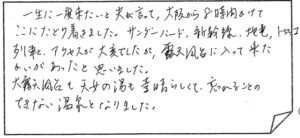 一生に一度来たいと夫が言って、大阪から8時間かけて
ここにたどり着きました。サンダーバード、新幹線、地鉄、トロッコ
列車と、アクセスが大変でしたが、露天風呂に入って来た
かいがあったと思いました。
大露天風呂も天女の湯も素晴らしくて、忘れることの
できない温泉となりました。